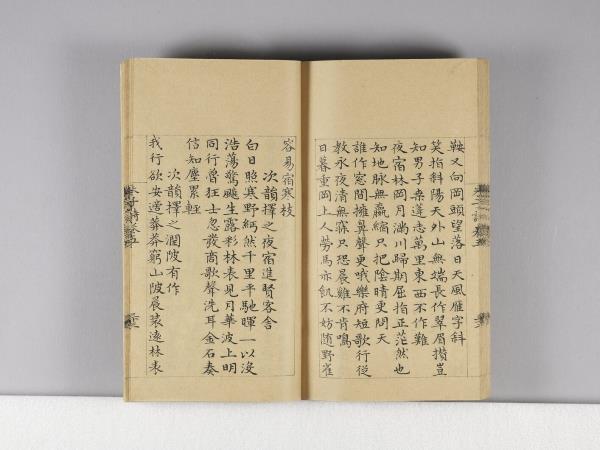 鞍又向岡頭望落日天風雁字斜
笑指斜陽天外山無端長作翠眉攢豈
知男子桑蓬志萬里東西不作難
夜宿林岡月滿川歸期屈指正茫然也
知地脉無贏縮只把陰晴更問天
誰作窓間擁鼻聲更哦樂府短歌行從
教永夜清無寐只恐晨雞不肯鳴
日暮重岡上人勞馬亦飢不妨隨野雀
容易宿寒枝
次韻擇之夜宿進賢客舍
白日照寒野緬然千里平馳暉一以沒
浩蕩驚飈生露彩林表見月華波上明
同行曾狂士忽發商歌聲洗耳金石奏
信知塵累輕
次韻擇之澗陂有作
我行欲安適莽莽窮山陂晨裝遠林表